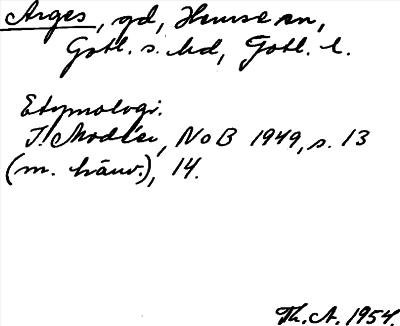 Arges, gd, Hemse sn,
Gotl. s. hd, Gotl. l.
Etymologi.
I. Modéer, NoB 1949, s. 13
(m. hänv.), 14.
Th. A. 1954.